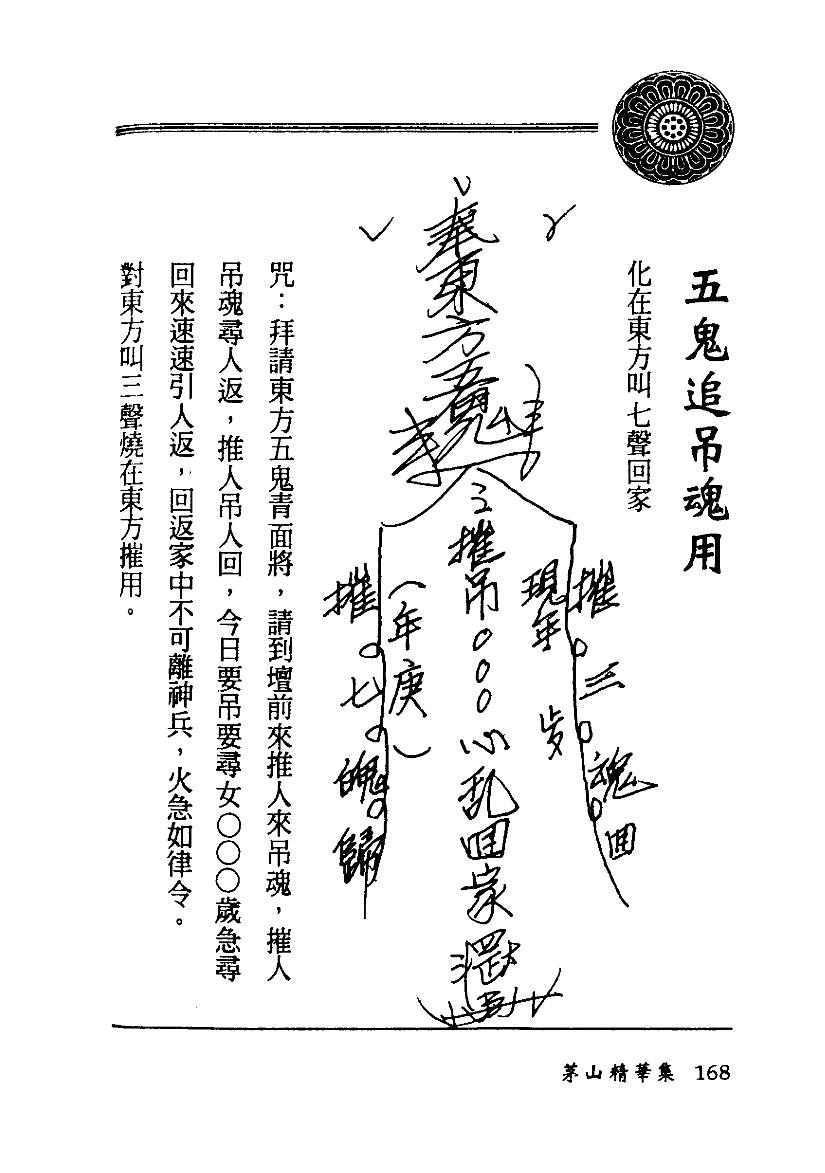 五鬼追吊魂用
化在東方叫七聲回家
奉東方五鬼
摧三魂回
現年 歲
摧吊○○○心乱回家
（年庚）
摧七魄歸
咒：拜請東方五鬼青面將，請到壇前來推人來吊魂，摧人
吊魂尋人返，推人吊人回，今日要吊要尋女○○○歲急尋
回來速速引人返，回返家中不可離神兵，火急如律令。
對東方叫三聲燒在東方摧用。
茅山精華集 168